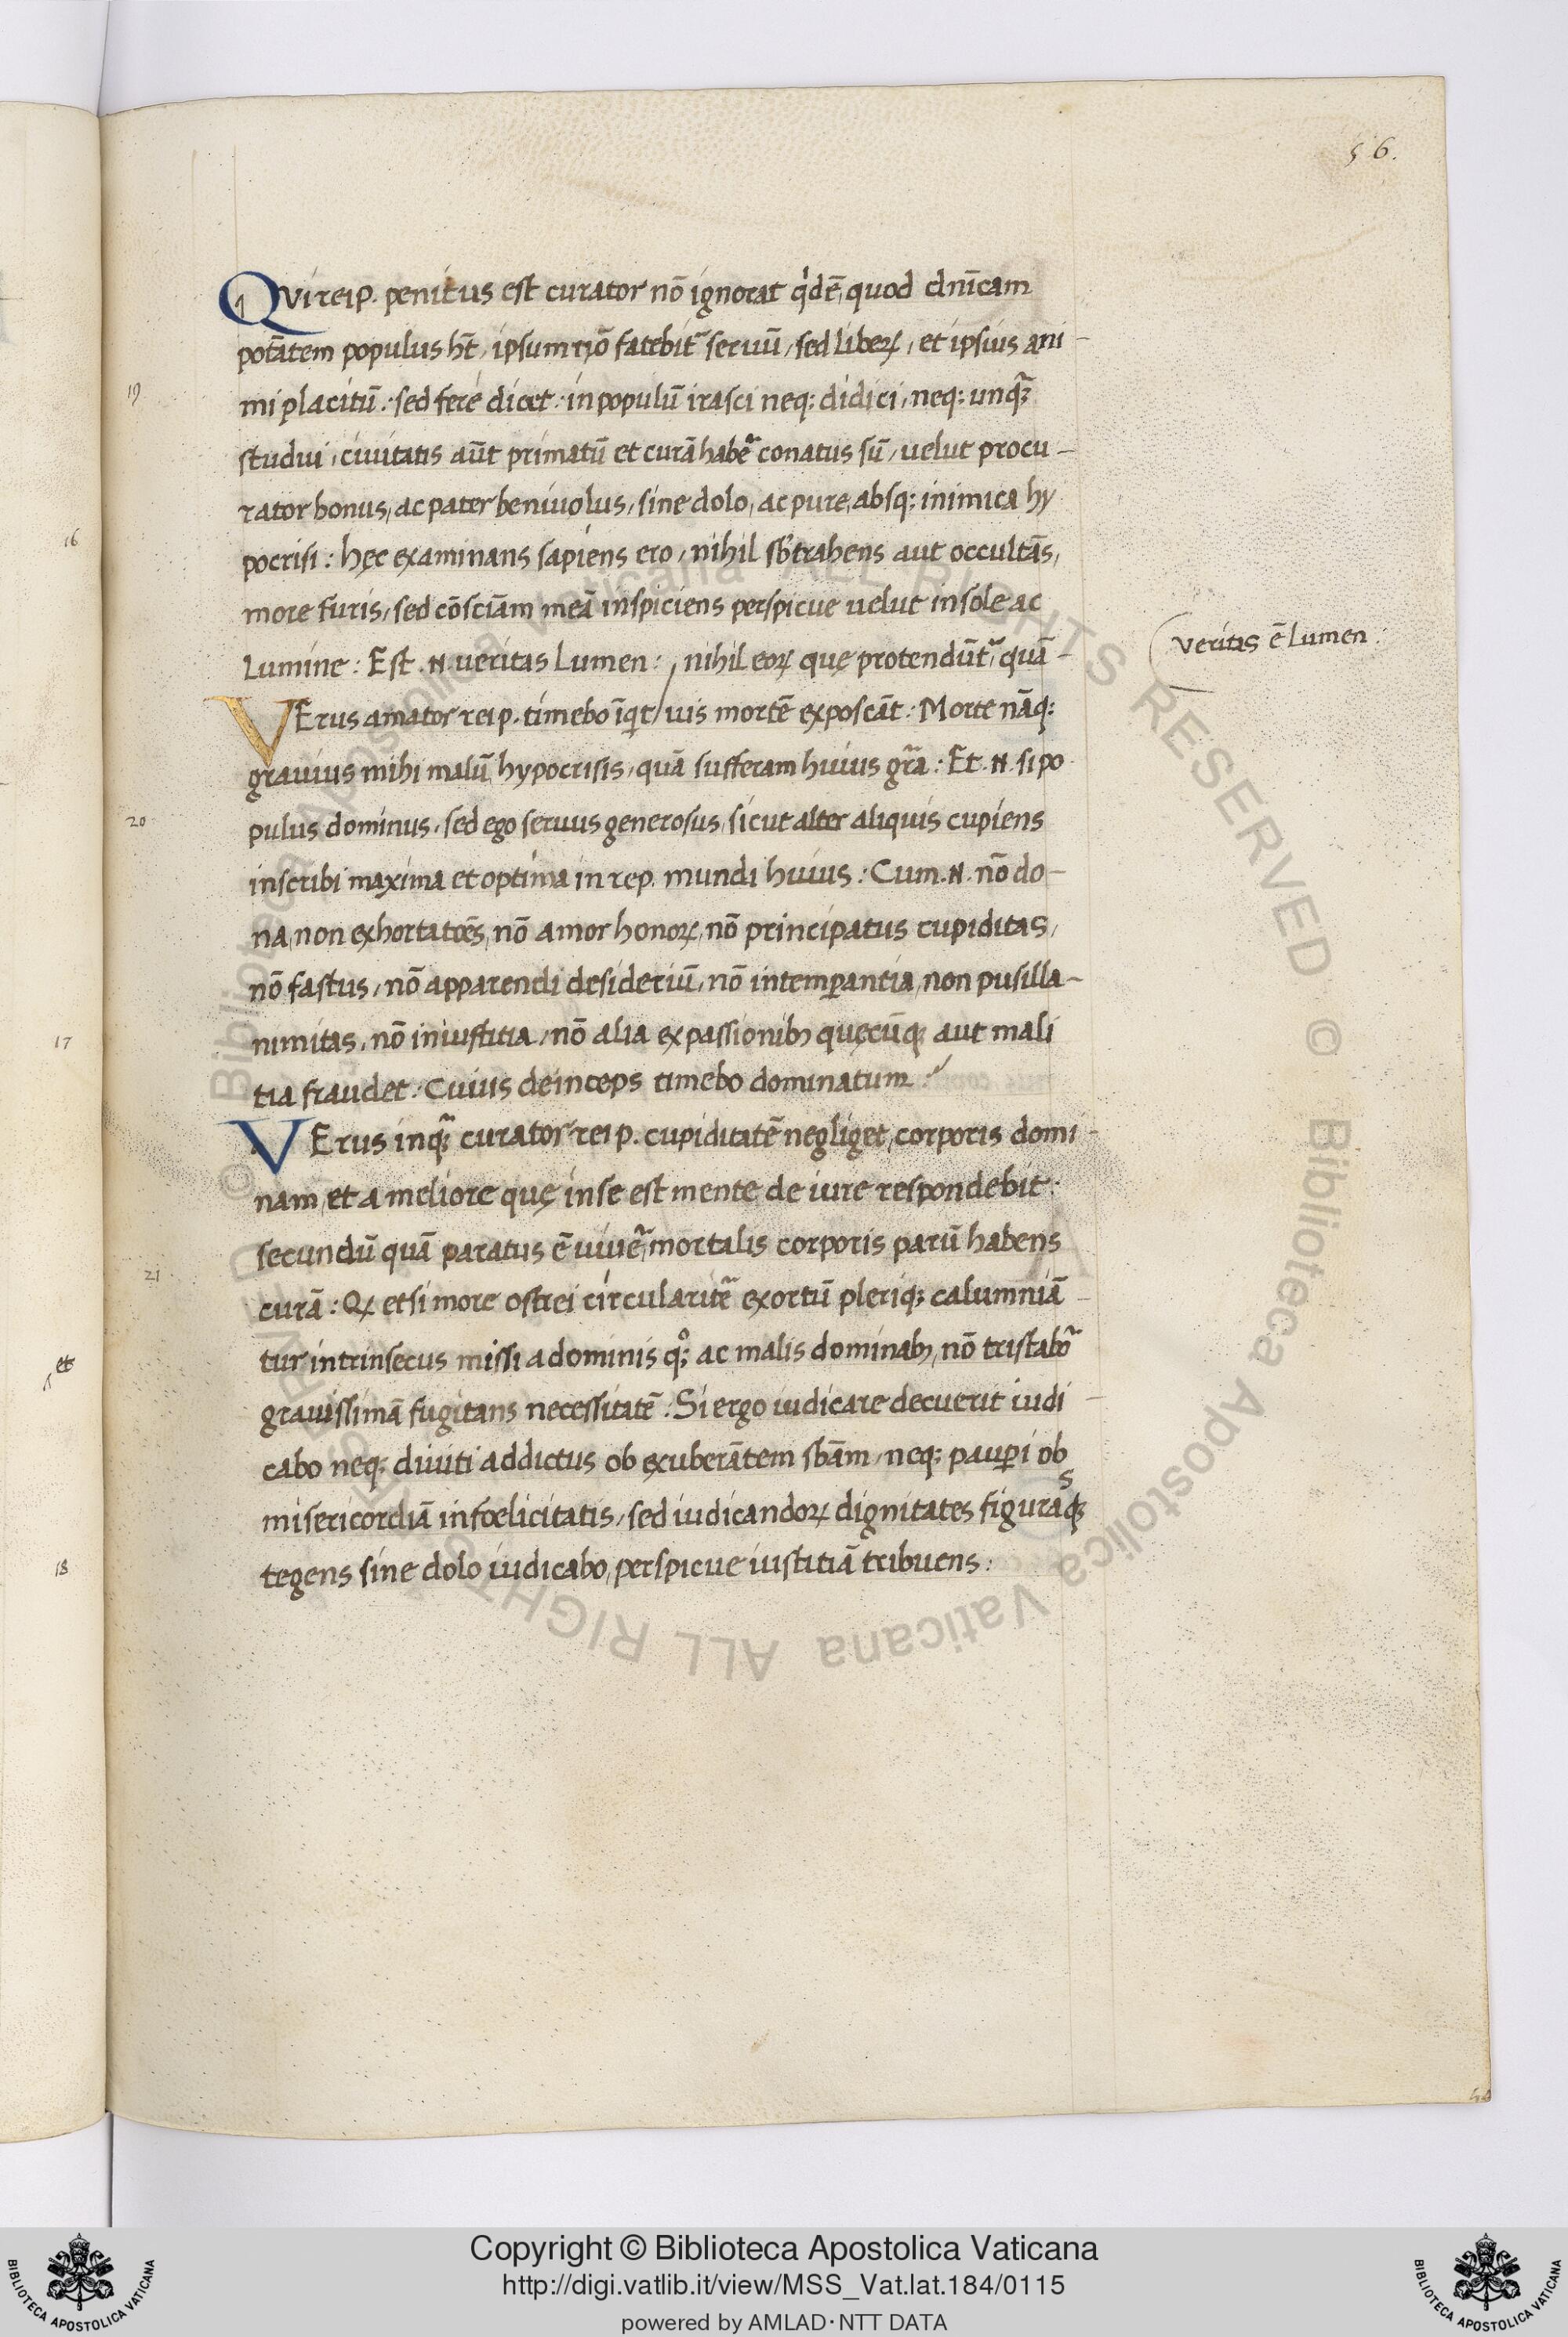 56.
QVi reip. penitus est curator nō ignorat qͥdē, quod dnīcam
potātem populus hēt, ipsum nō fatebit᷑ seruū, sed liberꝝ, et ipsius ani-
mi placitū: sed fere dicet: in populū irasci neq; didici, neq; unqᷓ
studui, ciuitatis aūt primatū et curā habe᷑ conatus sū, uelut procu-
rator bonus, ac pater beniuolus, sine dolo, ac pure, absq; inimica hy
pocrisi: hęc examinans sapiens ero, nihil sbtrahens aut occultās,
more furis, sed cōsciam meā inspiciens perspicue uelut in sole ac
Lumine: Est .N. ueritas Lumen: / nihil eoꝝ quę protendūt᷑, quā-
VErus amator reip. timebo īqͥt / uis mortē exposcāt: Morte nāq;
grauius mihi malū hypocrisis, quā sufferam huius grā: Et .N. si po
pulus dominus, sed ego seruus generosus, sicut alter aliquis cupiens
inscribi maxima et optima in rep. mundi huius: Cum .N. nō do-
na, non exhortatōes, nō amor honoꝝ, nō principatus cupiditas,
nō fastus, nō apparendi desideriū, nō intemꝑantia, non pusilla-
nimitas, nō iniustitia, nō alia ex passionibꝫ quęcūqꝫ aut mali
tia fraudet: Cuius deinceps timebo dominatum?
VErus inqᷓ curator reip. cupiditatē negliget, corporis domi-
nam, et a meliore quę in se est mente de iure respondebit:
secundū quā paratus ē uiue᷑, mortalis corporis parū habens
curā: Qꝝ etsi more ostrei circularit᷑ exortū pleriqꝫ calumniā-
tur intrinsecus missi a dominis qͦꝫ ac malis dominabꝫ, nō tristabo᷑
grauissimā fugitans necessitatē: Si ergo iudicare decuerit iudi-
cabo neqꝫ diuiti addictus ob exuberātem sbām, neq; pauꝑi ob
misericordiā infoelicitatis, sed iudicandoꝝ dignitates figurasqꝫ
tegens sine dolo iudicabo, perspicue iustitiā tribuens:
Veritas ē Lumen:
19
20
21
16
17
et
18
© Biblioteca Apostolica Vaticana ALL RIGHTS RESERVED © Biblioteca Apostolica Vaticana ALL RIGHTS RESERVED
Copyright © Biblioteca Apostolica Vaticana
http://digi.vatlib.it/view/MSS_Vat.lat.184/0115
powered by AMLAD·NTT DATA
BIBLIOTECA APOSTOLICA VATICANA
BIBLIOTECA APOSTOLICA VATICANA